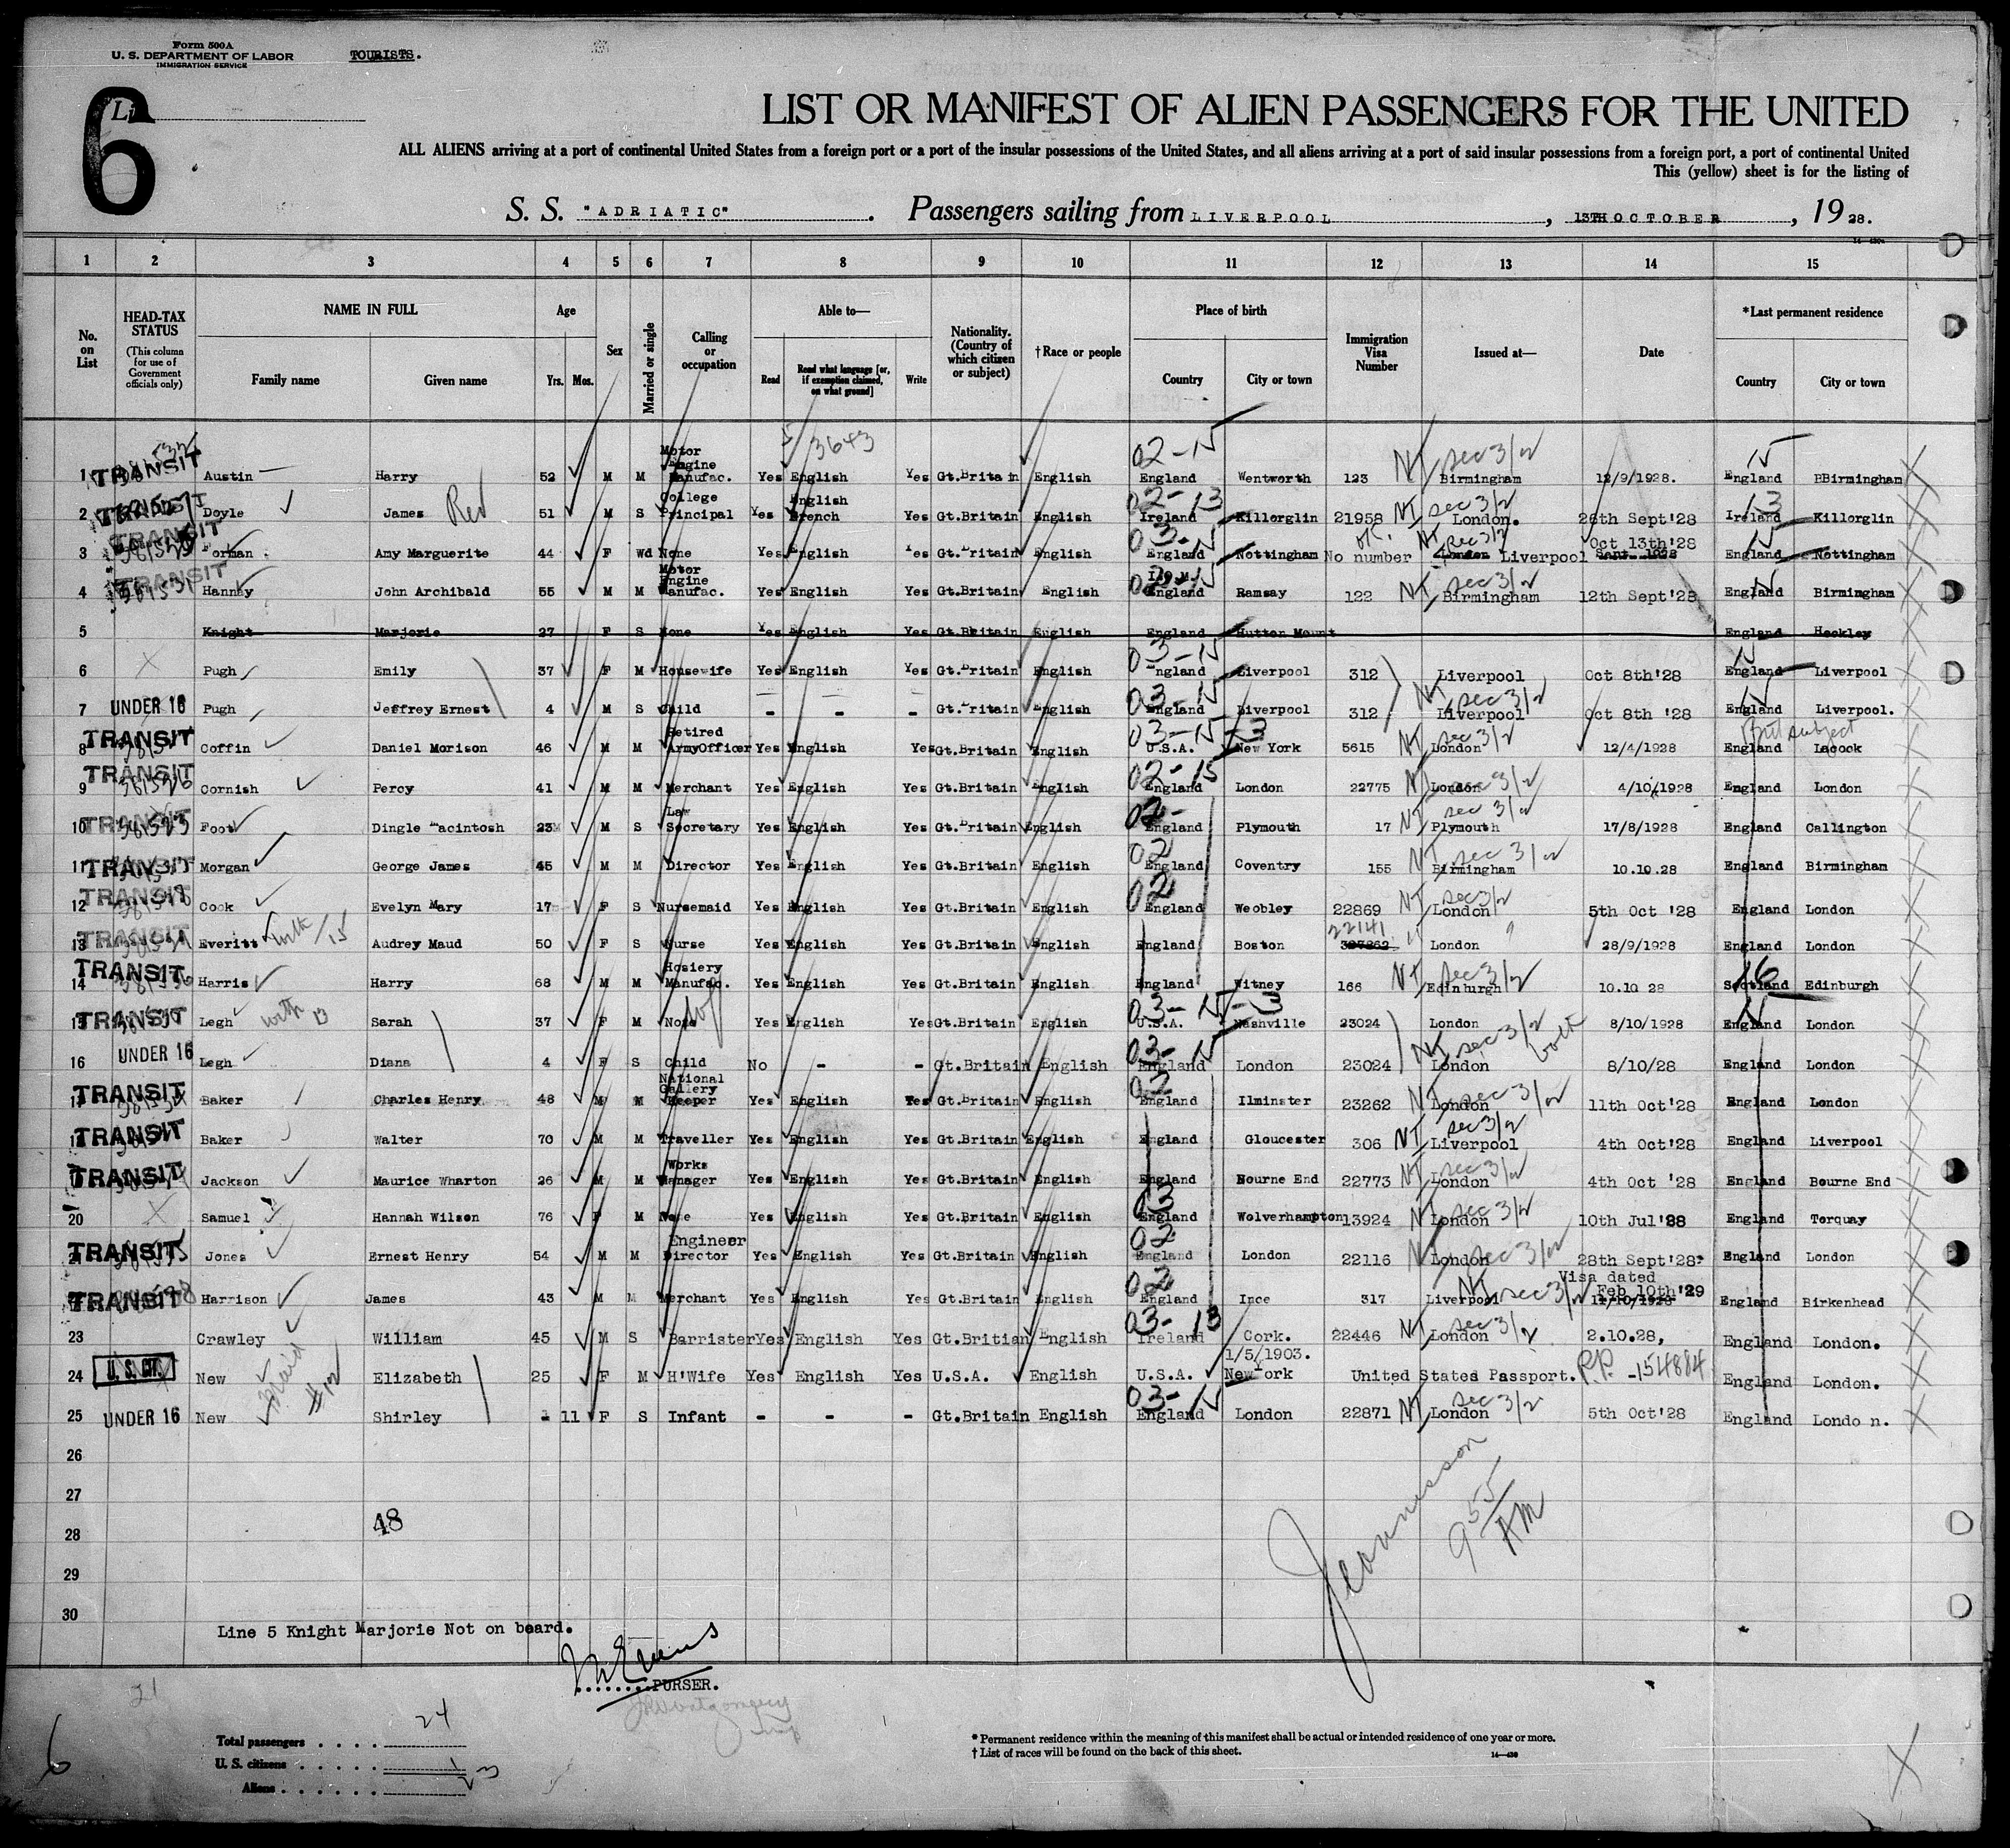 Form 500A
U. S. DEPARTMENT OF LABOR
IMMIGRATION SERVICE
TOURISTS.
6
LIST OR MANIFEST OF ALIEN PASSENGERS FOR THE UNITED
ALL ALIENS arriving at a port of continental United States from a foreign port or a port of the insular possessions of the United States, and all aliens arriving at a port of said insular possessions from a foreign port, a port of continental United
This (yellow) sheet is for the listing of
S. S. "ADRIATIC" . Passengers sailing from LIVERPOOL , 13TH OCTOBER , 19 28.
1 2 3 4 5 6 7 8 9 10 11 12 13 14 15
No. on List HEAD-TAX STATUS (This column for use of Government officials only) NAME IN FULL Family name Given name Age Yrs. Mos. Sex Married or single Calling or occupation Able to— Read Read what language [or, if exemption claimed, on what ground] Write Nationality. (Country of which citizen or subject) †Race or people Place of birth Country City or town Immigration Visa Number Issued at— Date *Last permanent residence Country City or town
3643
1 TRANSIT Austin Harry 52 M M Motor Engine Manufac. Yes English Yes Gt.Britain English 02-15 England Wentworth 123 NT sec 3/2 Birmingham 12/9/1928. 15 England BBirmingham
2 TRANSIT Doyle James Red 51 M S College Principal Yes English French Yes Gt.Britain English 02-13 Ireland Killorglin 21958 NT sec 3/2 London. 26th Sept'28 13 Ireland Killorglin
3 TRANSIT Forman Amy Marguerite 44 F Wd None Yes English Yes Gt.Britain English 03-15 England Nottingham No number NT sec 3/2 London Liverpool Oct 13th'28 Sept 1928 15 England Nottingham
4 TRANSIT Hannay John Archibald 55 M M Motor Engine Manufac. Yes English Yes Gt.Britain English I.O.M. England Ramsay 122 NT sec 3/2 Birmingham 12th Sept'28 15 England Birmingham
5 Knight Marjorie 27 F S None Yes English Yes Gt.Britain English England Hutton Mount England Hockley
6 Pugh Emily 37 F M Housewife Yes English Yes Gt.Britain English 03-15 England Liverpool 312 Liverpool Oct 8th'28 15 England Liverpool
7 UNDER 16 Pugh Jeffrey Ernest 4 M S Child - - - Gt.Britain English 03-15 England Liverpool 312 NT sec 3/2 Liverpool Oct 8th '28 15 England Liverpool.
8 TRANSIT Coffin Daniel Morison 46 M M Retired ArmyOfficer Yes English Yes Gt.Britain English 03-15-3 U.S.A. New York 5615 NT sec 3/2 London 12/4/1928 Brit subject England Lacock
9 TRANSIT Cornish Percy 41 M M Merchant Yes English Yes Gt.Britain English 02-15 England London 22775 NT sec 3/2 London 4/10/1928 England London
10 TRANSIT Foot Dingle Macintosh 23 M S Law Secretary Yes English Yes Gt.Britain English 02- England Plymouth 17 NT sec 3/2 Plymouth 17/8/1928 England Callington
11 TRANSIT Morgan George James 45 M M Director Yes English Yes Gt.Britain English 02 England Coventry 155 NT sec 3/2 Birmingham 10.10.28 England Birmingham
12 TRANSIT Cook Evelyn Mary 17 F S Nursemaid Yes English Yes Gt.Britain English 02 England Weobley 22869 NT sec 3/2 London 5th Oct '28 England London
13 TRANSIT Everitt with 15 Audrey Maud 50 F S Nurse Yes English Yes Gt.Britain English England Boston 22141 327862 " London 28/9/1928 England London
14 TRANSIT Harris Harry 68 M M Hosiery Manufac. Yes English Yes Gt.Britain English England Witney 166 NT sec 3/2 Edinburgh 10.10 28 16 Scotland Edinburgh
15 TRANSIT Legh with 13 Sarah 37 F M None Yes English Yes Gt.Britain English 03-15-3 U.S.A. Nashville 23024 London 8/10/1928 15 England London
16 UNDER 16 Legh Diana 4 F S Child No - - Gt.Britain English 03-15 England London 23024 NT sec 3/2 both London 8/10/28 England London
17 TRANSIT Baker Charles Henry 48 M M National Gallery Keeper Yes English Yes Gt.Britain English 02 England Ilminster 23262 NT sec 3/2 London 11th Oct'28 England London
18 TRANSIT Baker Walter 70 M M Traveller Yes English Yes Gt.Britain English England Gloucester 306 NT sec 3/2 Liverpool 4th Oct'28 England Liverpool
19 TRANSIT Jackson Maurice Wharton 26 M M Works Manager Yes English Yes Gt.Britain English England Bourne End 22773 NT sec 3/2 London 4th Oct '28 England Bourne End
20 Samuel Hannah Wilson 76 F M None Yes English Yes Gt.Britain English 03 England Wolverhampton 13924 NT sec 3/2 London 10th Jul'28 England Torquay
21 TRANSIT Jones Ernest Henry 54 M M Engineer Director Yes English Yes Gt.Britain English 02 England London 22116 NT sec 3/2 London 28th Sept'28 England London
22 TRANSIT Harrison James 43 M M Merchant Yes English Yes Gt.Britain English 02 England Ince 317 Liverpool NT sec 3/2 Visa dated Feb 10th'29 11/10/1928 England Birkenhead
23 Crawley William 45 M S Barrister Yes English Yes Gt.Britian English 03-13 Ireland Cork. 22446 NT sec 3/2 London 2.10.28, England London.
24 U.S. CIT. New Elizabeth 25 F M H'Wife Yes English Yes U.S.A. English U.S.A. 1/5/1903. New York United States Passport. P.P. -154884 England London.
25 UNDER 16 New Maid #12 Shirley - 11 F S Infant - - - Gt.Britain English 03-15 England London 22871 NT sec 3/2 London 5th Oct'28 England Londo n.
26
27
28 48
29
30
Line 5 Knight Marjorie Not on board.
9 55 AM
........PURSER.
21
6
Total passengers . . . . 24
U. S. citizens . . . . . 1
Aliens . . . . . . 23
* Permanent residence within the meaning of this manifest shall be actual or intended residence of one year or more.
† List of races will be found on the back of this sheet.
14—430